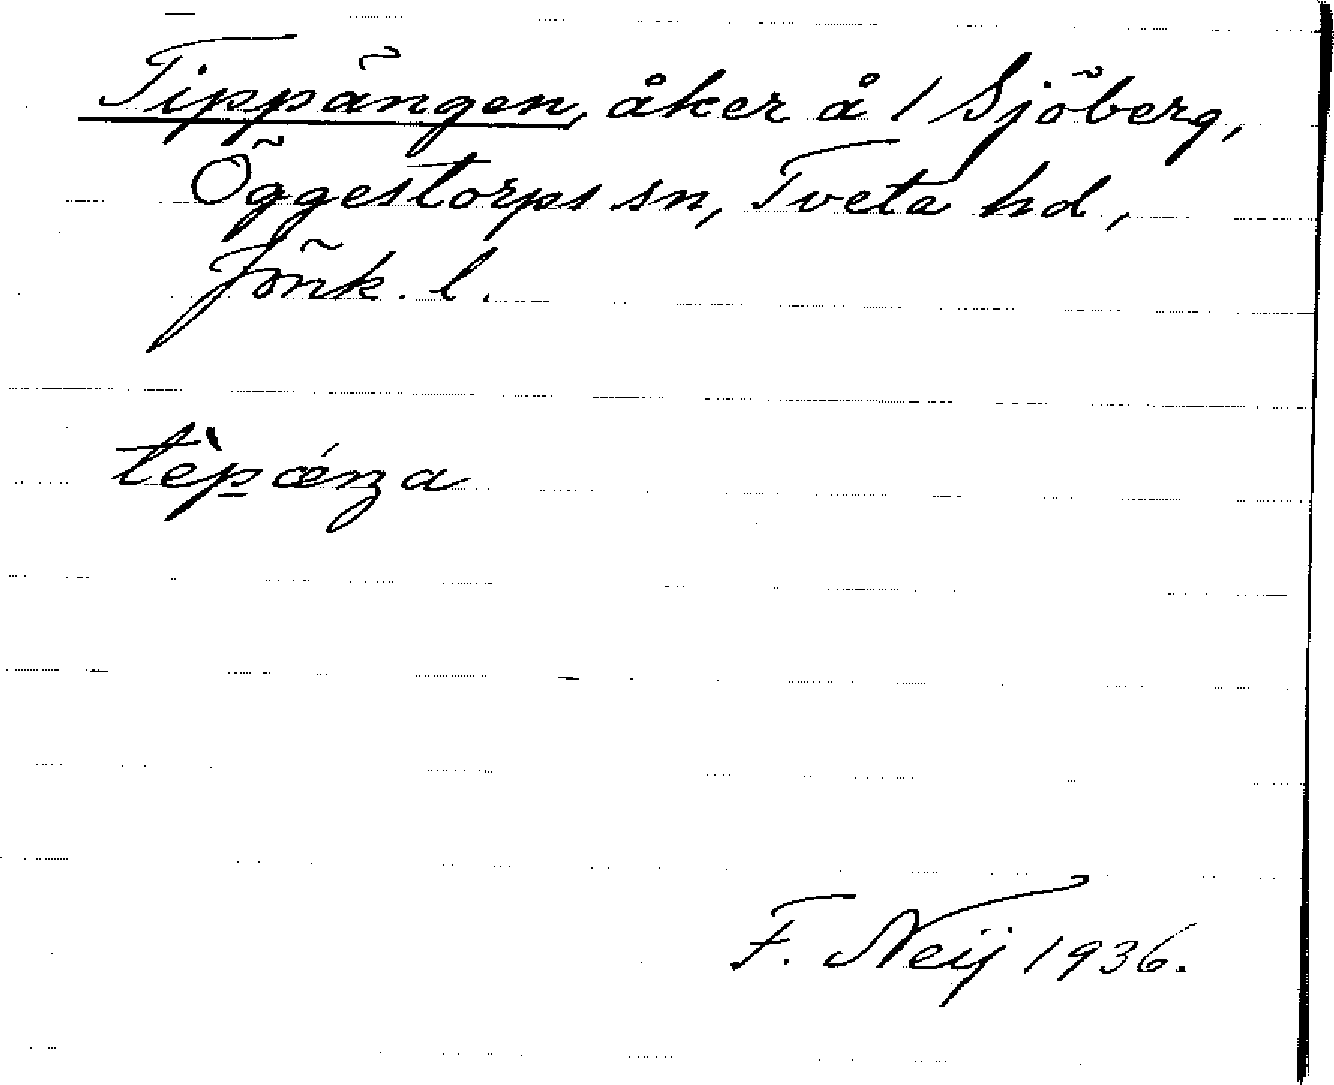 Tippängen, åker å 1 Sjöberg,
Öggestorps sn, Tveta hd,
Jönk. l.
tèpǽŋa
F. Neij 1936.